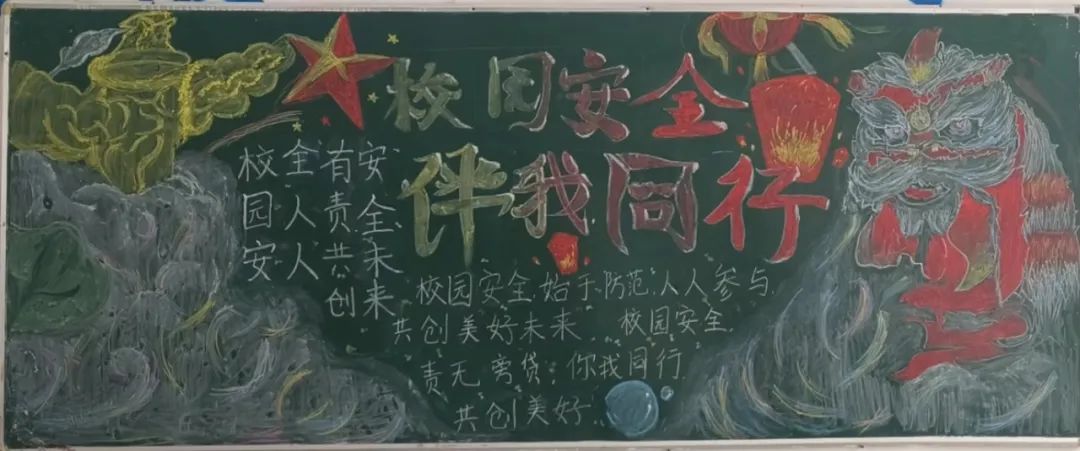 校园安全
伴我同行
校园安
全人人
有责共创
安全来来
校园安全,始于防范,人人参与,
共创美好未来. 校园安全,
责无旁贷,你我同行.
共创美好...